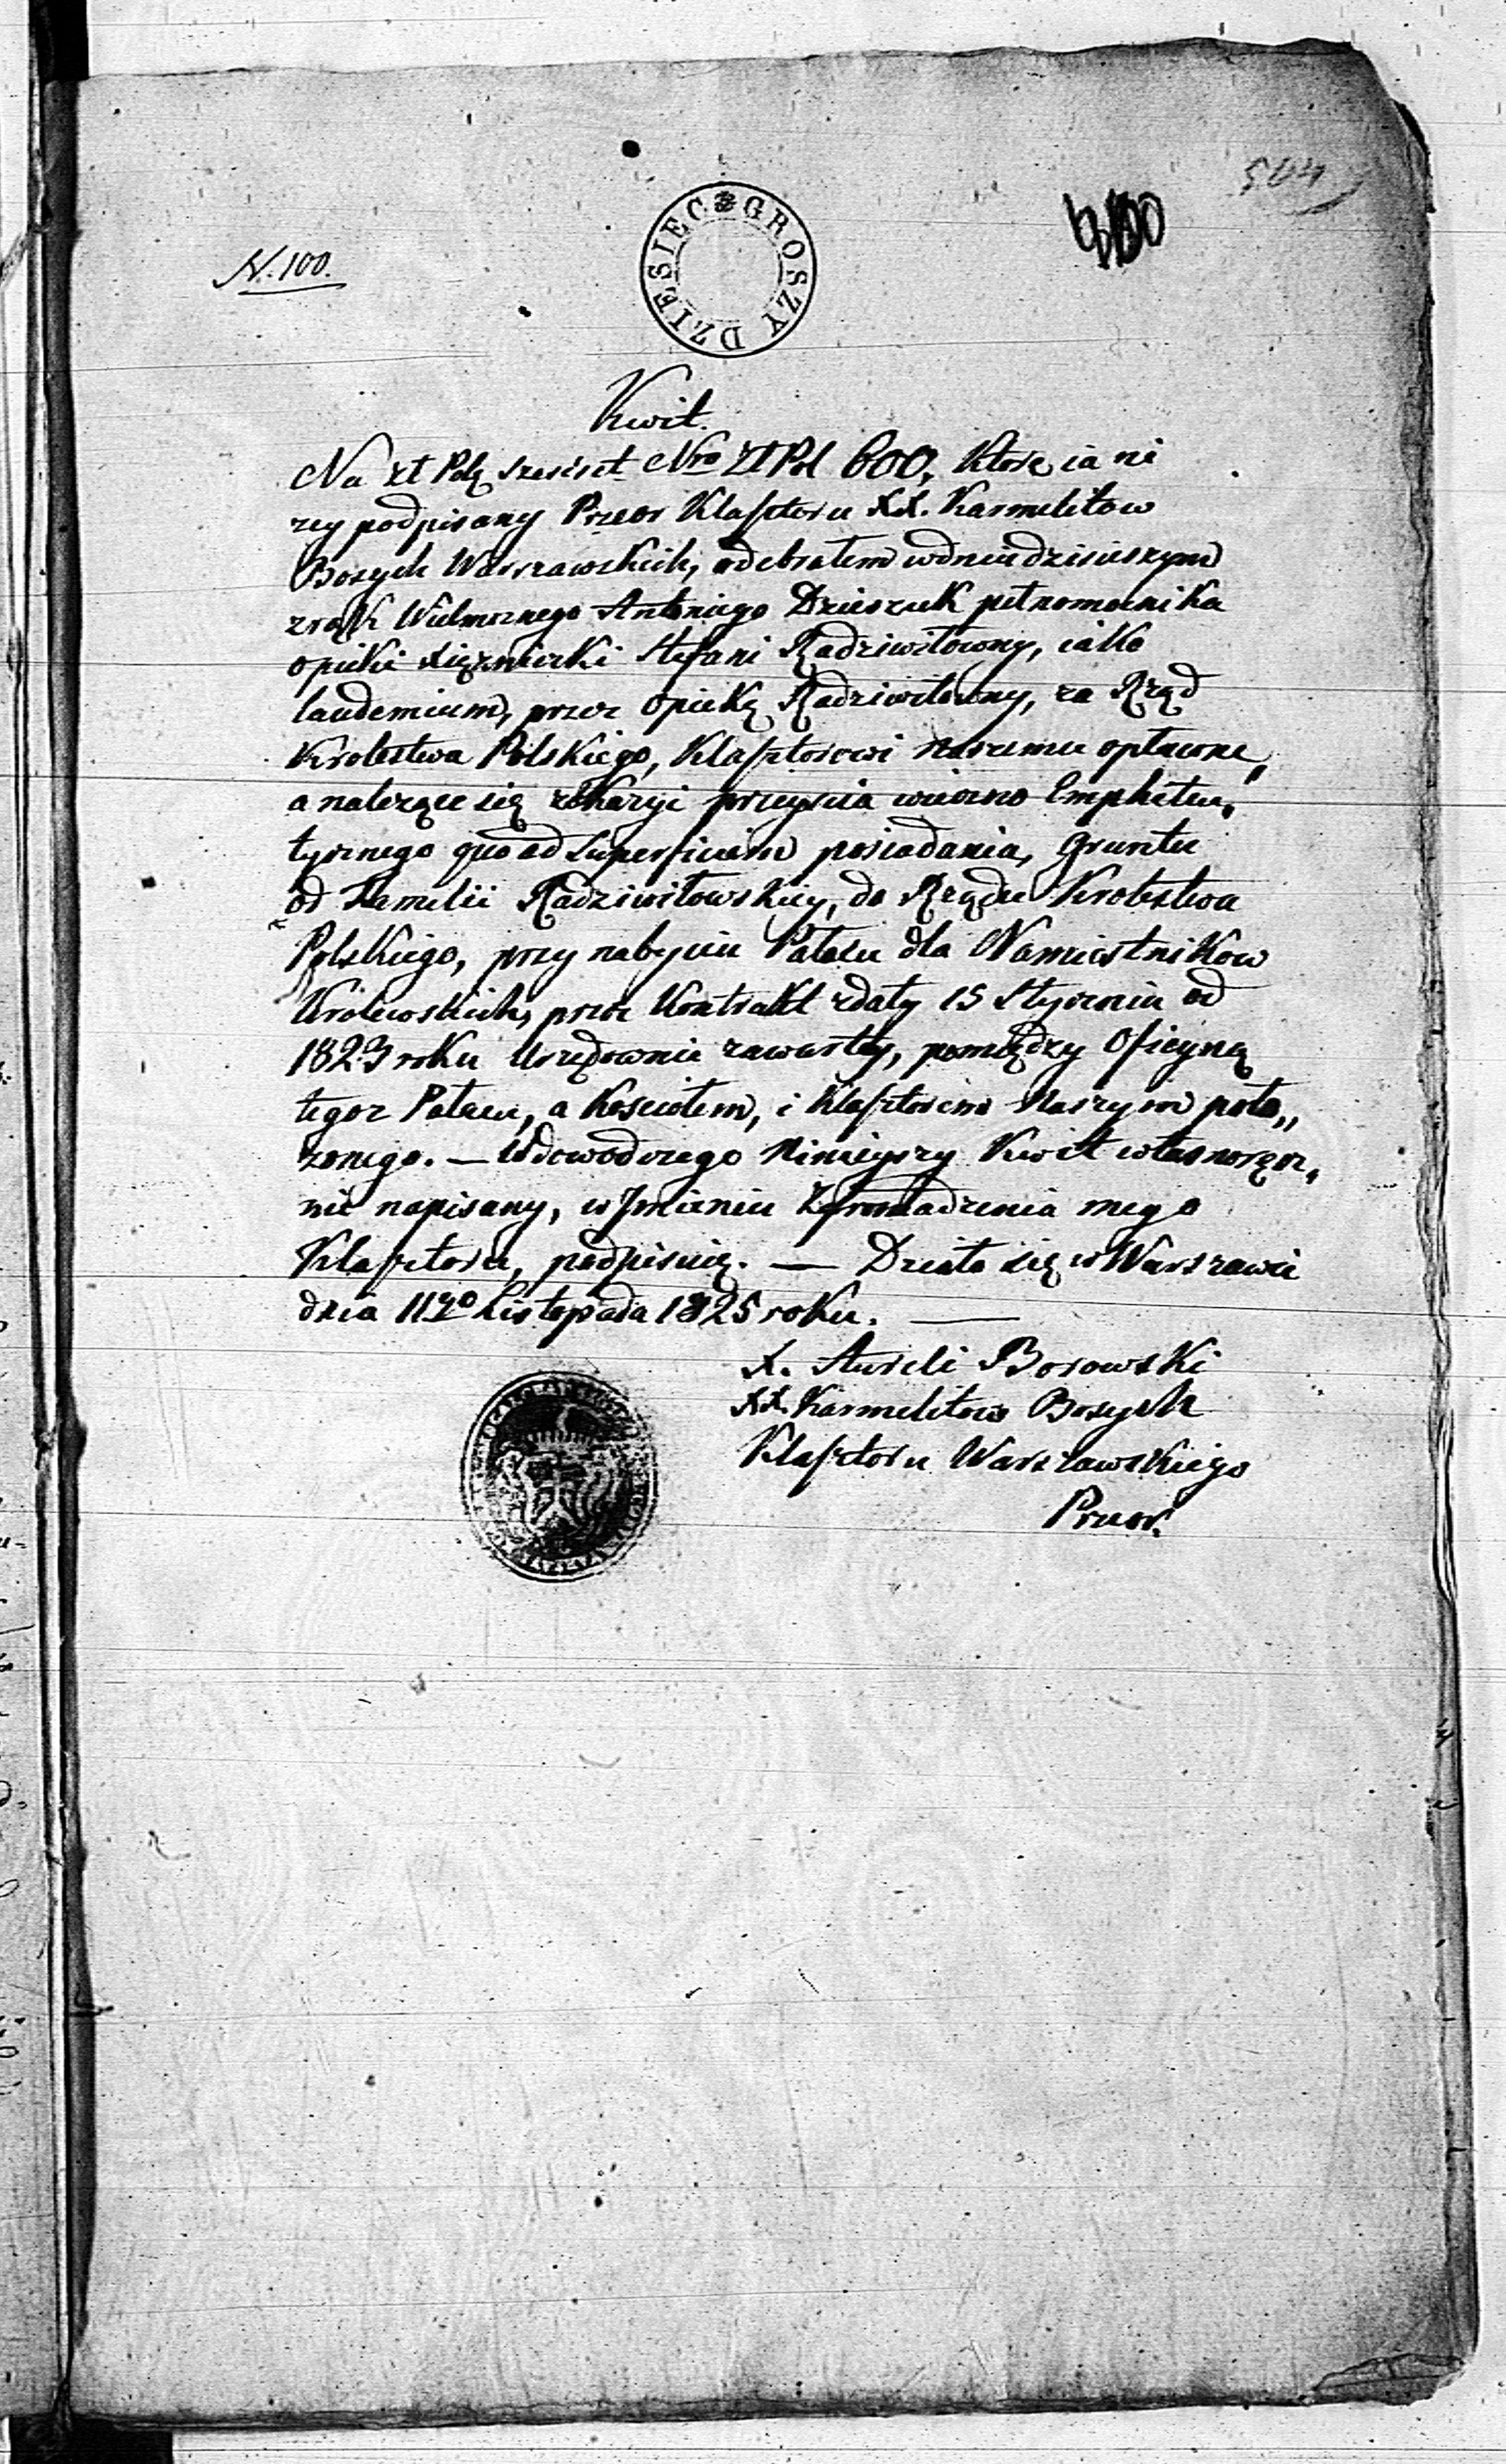 504
N. 100.
DZIESIĘC GROSZY
Kwit.
Na zł Polę szescset Nro Zł Pol 600, Ktore ia ni
zey podpisany Przeor Klasztoru XX. Karmelitow
Bosych Warszawskich, odebrałem wdniu dzisieiszym
zrąk Wielmoznego Antoniego Dzieszuk pełnomocnika
opieki xięzniczki Stefani Radziwiłłowny, iako
laudemium, przez Opiekę Radziwiłowny, za Rząd
Krolestwa Polskiego, Klasztorowi Naszemu opłacone,
a nalezące się zokazyi przeyscia wieczno Emphiteu„
tycznego quoad Superficiem posiadania, Gruntu
od Familii Radziwiłowskiey, do Rządu Krolestwa
Polskiego, przy nabyciu Pałacu dla Namiestnikow
Krolewskich, przez Kontrakt zdaty 15 Stycznia od
1823 roku Urzędownie zawarty, pomiędzy Oficyną
tegoz Pałacu, a Kosciołem, i Klasztorem Naszym poło„
zonego. — Wdowod czego Ninieyszy Kwit własnoręcz„
nie napisany, w Imieniu Zgromadzenia mego
Klasztoru, podpisuię. — Działo się w Warszawie
dnia 11go Listopada 1825 roku. —
X. Aureli Borowski
XX. Karmelitow Bosych
Klasztoru Warszawskiego
Przeor.